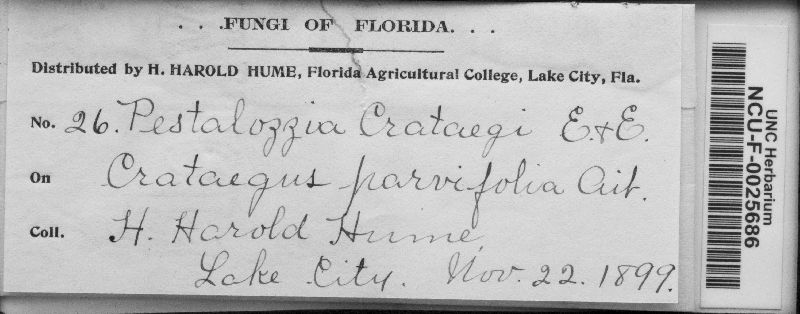 . . .FUNGI OF FLORIDA. . .
Distributed by H. HAROLD HUME, Florida Agricultural College, Lake City, Fla.
No. 26. Pestalozzia Crataegi E&E.
On Crataegus parvifolia Ait.
Coll. H. Harold Hume,
Lake City. Nov. 22. 1899.
UNC Herbarium
NCU-F-0025686